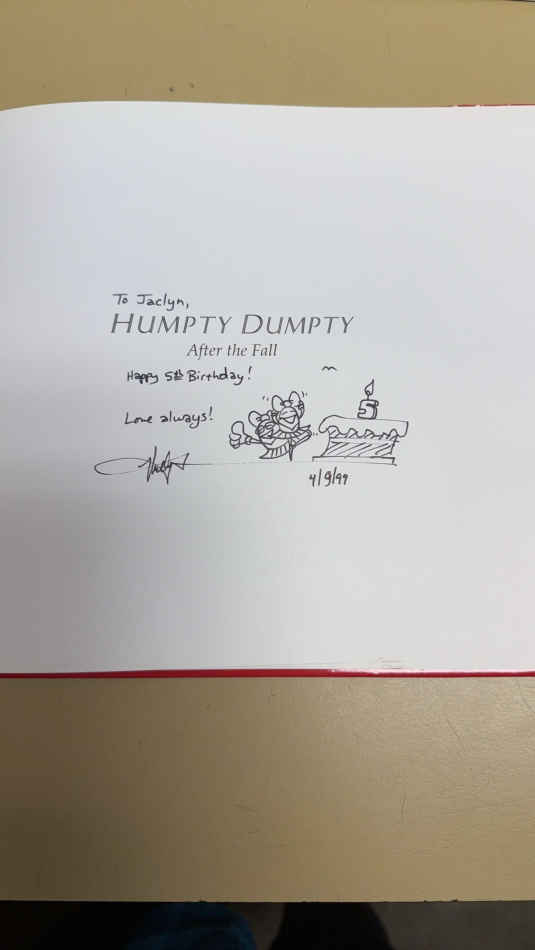 To Jaclyn,
HUMPTY DUMPTY
After the Fall
Happy 5th Birthday!
Love always!
5
4/9/99